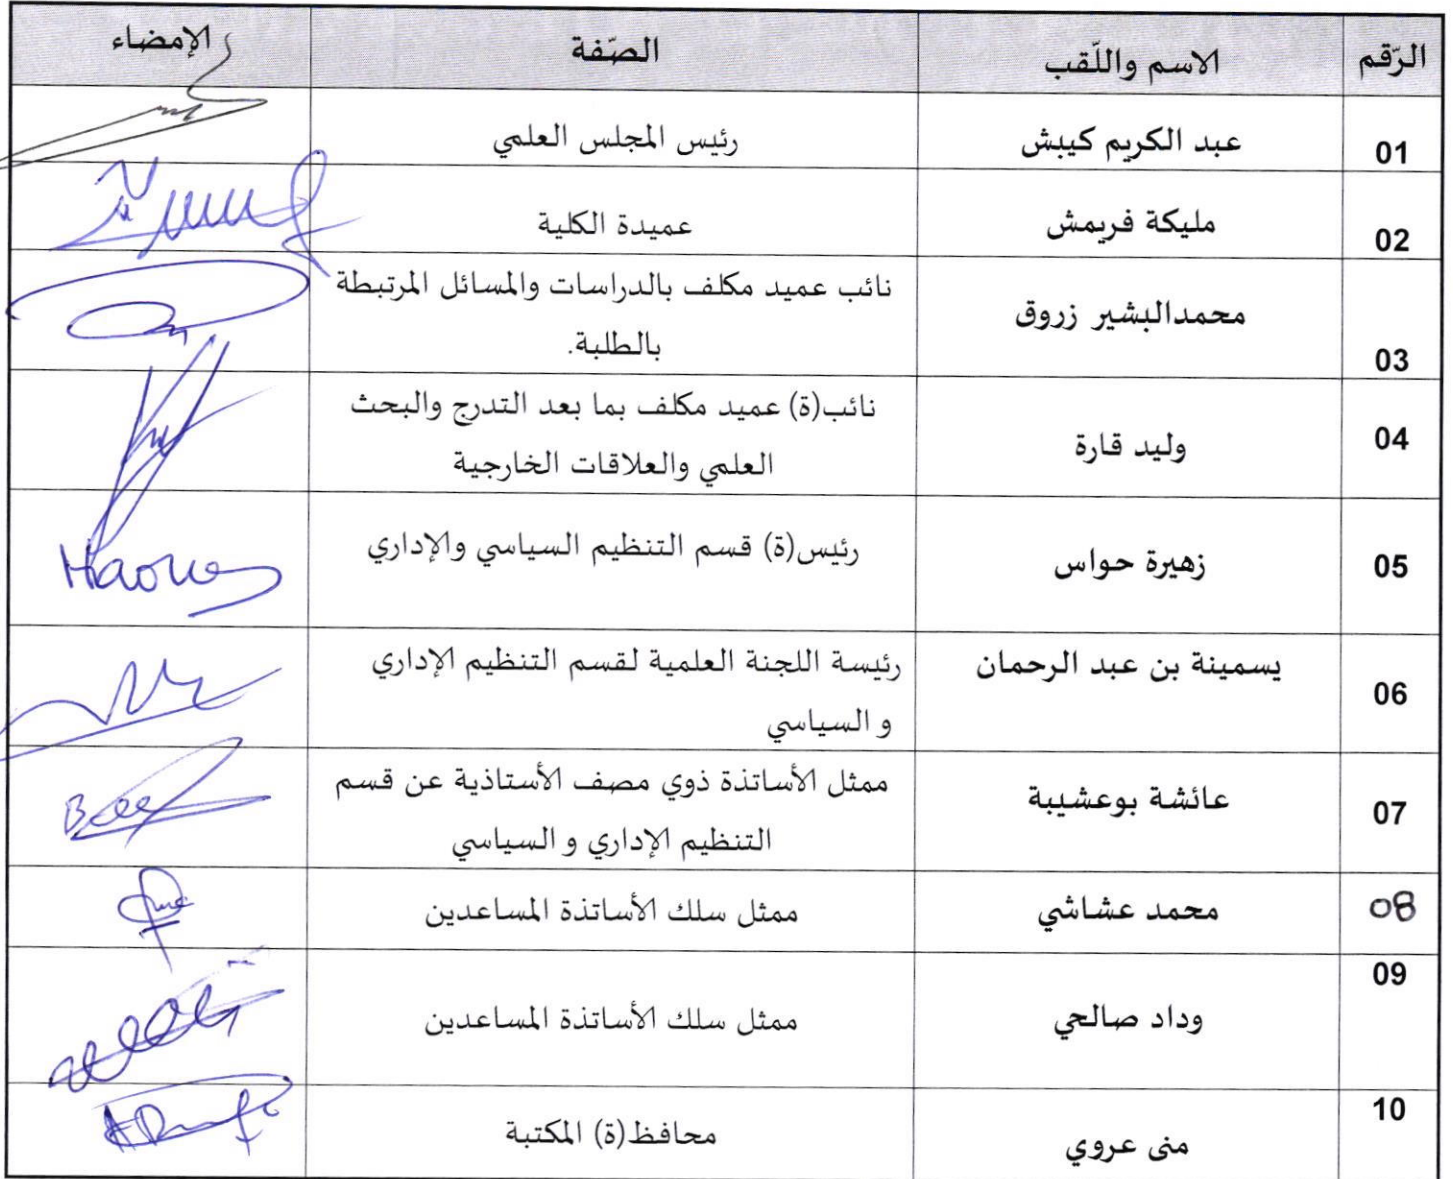 الرّقم الاسم واللّقب الصّفة الإمضاء
01 عبد الكريم كيبش رئيس المجلس العلمي
02 مليكة فريمش عميدة الكلية
03 محمدالبشير زروق نائب عميد مكلف بالدراسات والمسائل المرتبطة
بالطلبة.
04 وليد قارة نائب(ة) عميد مكلف بما بعد التدرج والبحث
العلمي والعلاقات الخارجية
05 زهيرة حواس رئيس(ة) قسم التنظيم السياسي والإداري Haoues
06 يسمينة بن عبد الرحمان رئيسة اللجنة العلمية لقسم التنظيم الإداري
و السياسي
07 عائشة بوعشيبة ممثل الأساتذة ذوي مصف الأستاذية عن قسم
التنظيم الإداري و السياسي
08 محمد عشاشي ممثل سلك الأساتذة المساعدين
09 وداد صالحي ممثل سلك الأساتذة المساعدين
10 منى عروي محافظ(ة) المكتبة